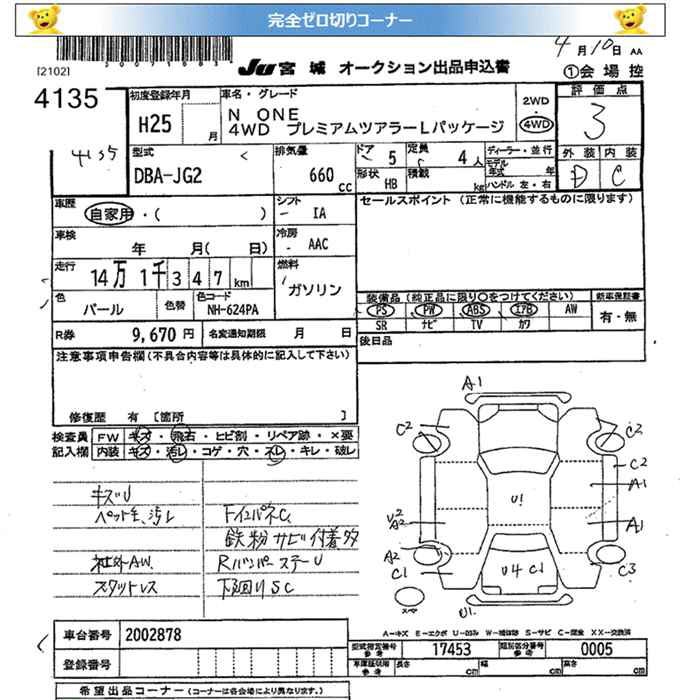 完全ゼロ切りコーナー
4月10日 AA
[2102]
JU 宮城 オークション出品申込書
①会場控
4135
初度登録年月
H25 月
車名・グレード
N ONE
4WD プレミアムツアラーLパッケージ
2WD
4WD
評価点
3
外装 内装
D C
4135
型式
DBA-JG2
排気量
660 cc
ドア 5
定員 4人
ディーラー・並行
モデル年式 年
形状 HB
積載 kg
ハンドル 左・右
車歴
自家用・( )
シフト
IA
セールスポイント (正常に機能するものに限ります)
車検
年 月( 日)
冷房
AAC
走行
14万 1千 3 4 7 km
燃料
ガソリン
色
パール
色替
色コード
NH-624PA
装備品 (純正品に限り○をつけてください)
新車保証書
PS PW ABS エアB AW
有・無
SR ナビ TV カワ
R券 9,670円
名変通知期限 月 日
後日品
注意事項申告欄 (不具合内容等は具体的に記入して下さい)
修復歴 有 [箇所 ]
検査員 FW キズ・飛石・ヒビ割・リペア跡・×要
記入欄 内装 キズ・汚レ・コゲ・穴・スレ・キレ・破レ
キズU
ペット毛、汚レ
社外AW.
スタットレス
鉄粉 サビ 付着多
RバンパーステーU
下廻りSC
A1
C2
C2
C2
A1
U1
U2
A2
A1
A2
C1
U4 C1
C3
U1.
A-キズ E-エクボ U-凹み W-補修跡 S-サビ C-腐食 XX-交換済
車台番号 2002878
登録番号
型式指定番号 参考 17453
類別区分番号 参考 0005
車庫証明用 参考 長さ 幅 高さ cm
希望出品コーナー (コーナーは各会場により異なります。)